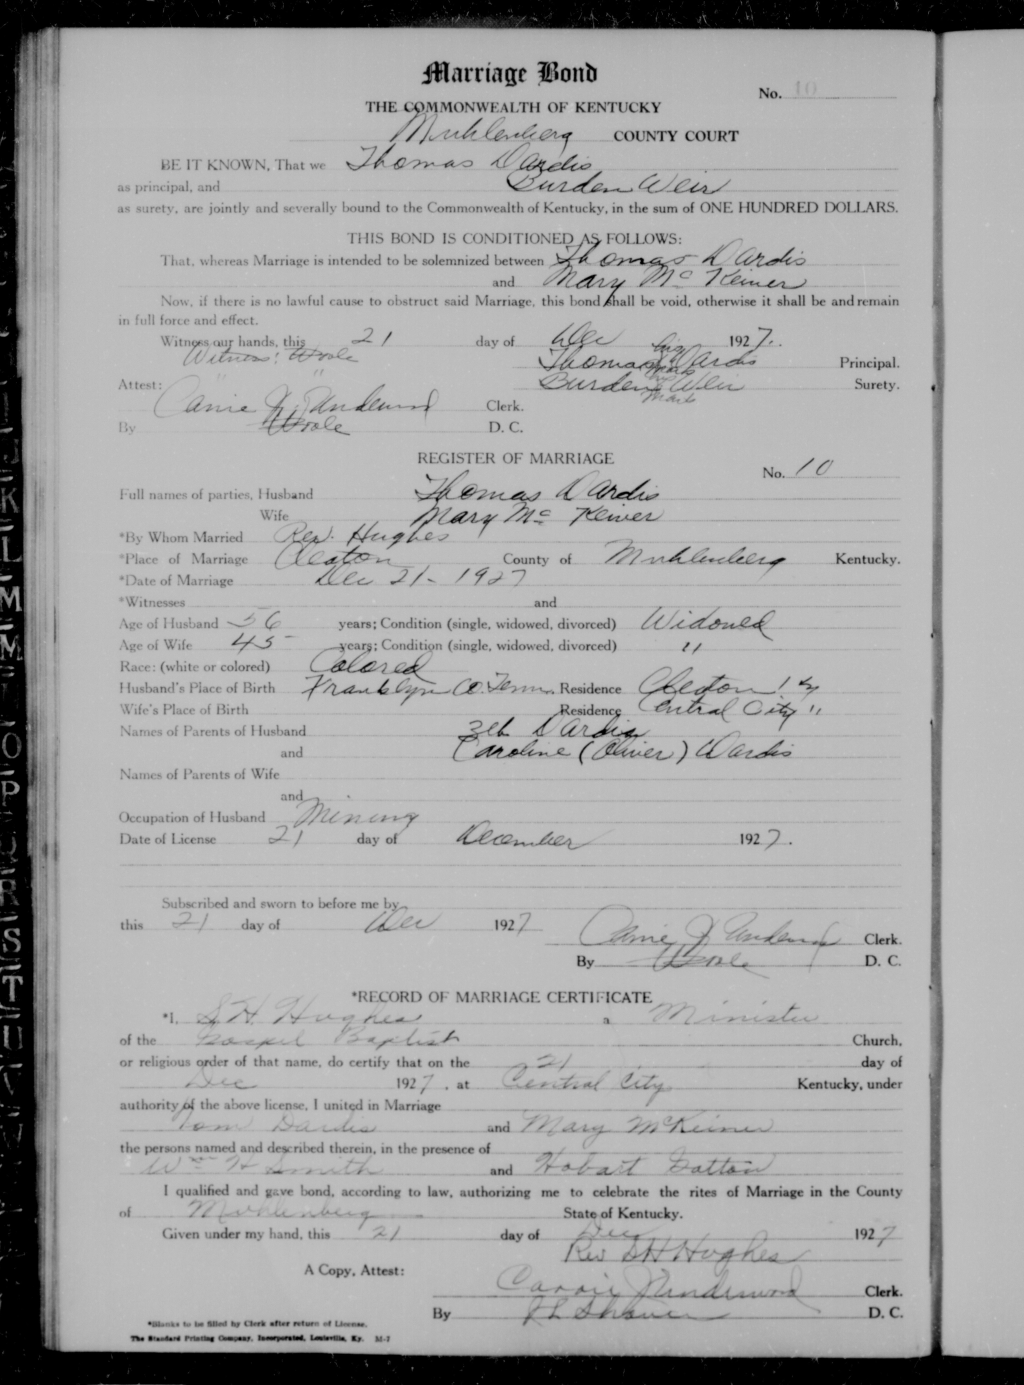 Marriage Bond
No. 10
THE COMMONWEALTH OF KENTUCKY
Muhlenberg COUNTY COURT
BE IT KNOWN, That we Thomas Dardis
as principal, and Burden Weir
as surety, are jointly and severally bound to the Commonwealth of Kentucky, in the sum of ONE HUNDRED DOLLARS.
THIS BOND IS CONDITIONED AS FOLLOWS:
That, whereas Marriage is intended to be solemnized between Thomas Dardis
and Mary Mc Keiver
Now, if there is no lawful cause to obstruct said Marriage, this bond shall be void, otherwise it shall be and remain
in full force and effect.
Witness our hands, this 21 day of Dec 1927.
Witness:
his
Thomas X Dardis Principal.
mark
Attest: " " Burden Weir Surety.
mark
Carrie J. Underwood Clerk.
By D. C.
REGISTER OF MARRIAGE
No. 10
Full names of parties, Husband Thomas Dardis
Wife Mary Mc Keiver
*By Whom Married Rev. Hughes
*Place of Marriage Cleaton County of Muhlenberg Kentucky.
*Date of Marriage Dec 21 - 1927
*Witnesses and
Age of Husband 56 years; Condition (single, widowed, divorced) Widowed
Age of Wife 45 years; Condition (single, widowed, divorced) "
Race: (white or colored) Colored
Husband's Place of Birth Franklyn Co. Tenn. Residence Cleaton Ky
Wife's Place of Birth Residence Central City "
Names of Parents of Husband Zeb Dardis
and Caroline (Oliver) Dardis
Names of Parents of Wife
and
Occupation of Husband Mining
Date of License 21 day of December 1927.
Subscribed and sworn to before me by
this 21 day of Dec 1927
Carrie J Underwood Clerk.
By D. C.
*RECORD OF MARRIAGE CERTIFICATE
*I, S H Hughes a Minister
of the Gospel Baptist Church,
or religious order of that name, do certify that on the 21 day of
Dec 1927, at Central City Kentucky, under
authority of the above license, I united in Marriage
Tom Dardis and Mary McKeiver
the persons named and described therein, in the presence of
Wm H Smith and Hobart Gatton
I qualified and gave bond, according to law, authorizing me to celebrate the rites of Marriage in the County
of Muhlenberg State of Kentucky.
Given under my hand, this 21 day of Dec 1927
Rev S H Hughes
A Copy, Attest:
Carrie J Underwood Clerk.
By D. C.
*Blanks to be filled by Clerk after return of License.
The Standard Printing Company, Incorporated, Louisville, Ky. M-7
K
L
M
O
P
R
S
T
U